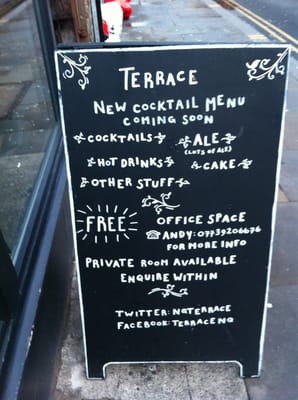 TERRACE
NEW COCKTAIL MENU
COMING SOON
COCKTAILS
ALE
(LOTS OF ALE)
HOT DRINKS
CAKE
OTHER STUFF
FREE OFFICE SPACE
☎ANDY: 07739206676
FOR MORE INFO
PRIVATE ROOM AVAILABLE
ENQUIRE WITHIN
TWITTER: NQTERRACE
FACEBOOK: TERRACENQ